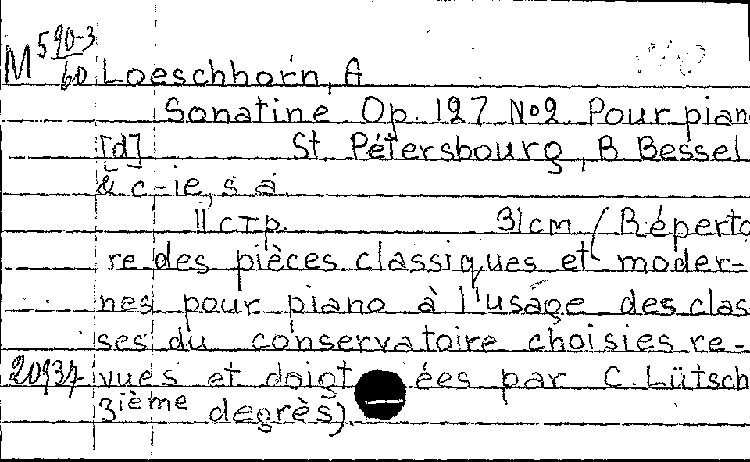 M 590-3
60 Loeschhorn, A
Sonatine Op. 127 No2 Pour pian
[d] St. Pétersbourg, B Bessel
& c-ie, s a
11 стр. 31 cm (Réperto
re des pièces classiques et moder-
nes pour piano à l'usage des clas
ses du conservatoire choisies re-
20937 vues et doigtées par C. Lütsch
3ième degrès).